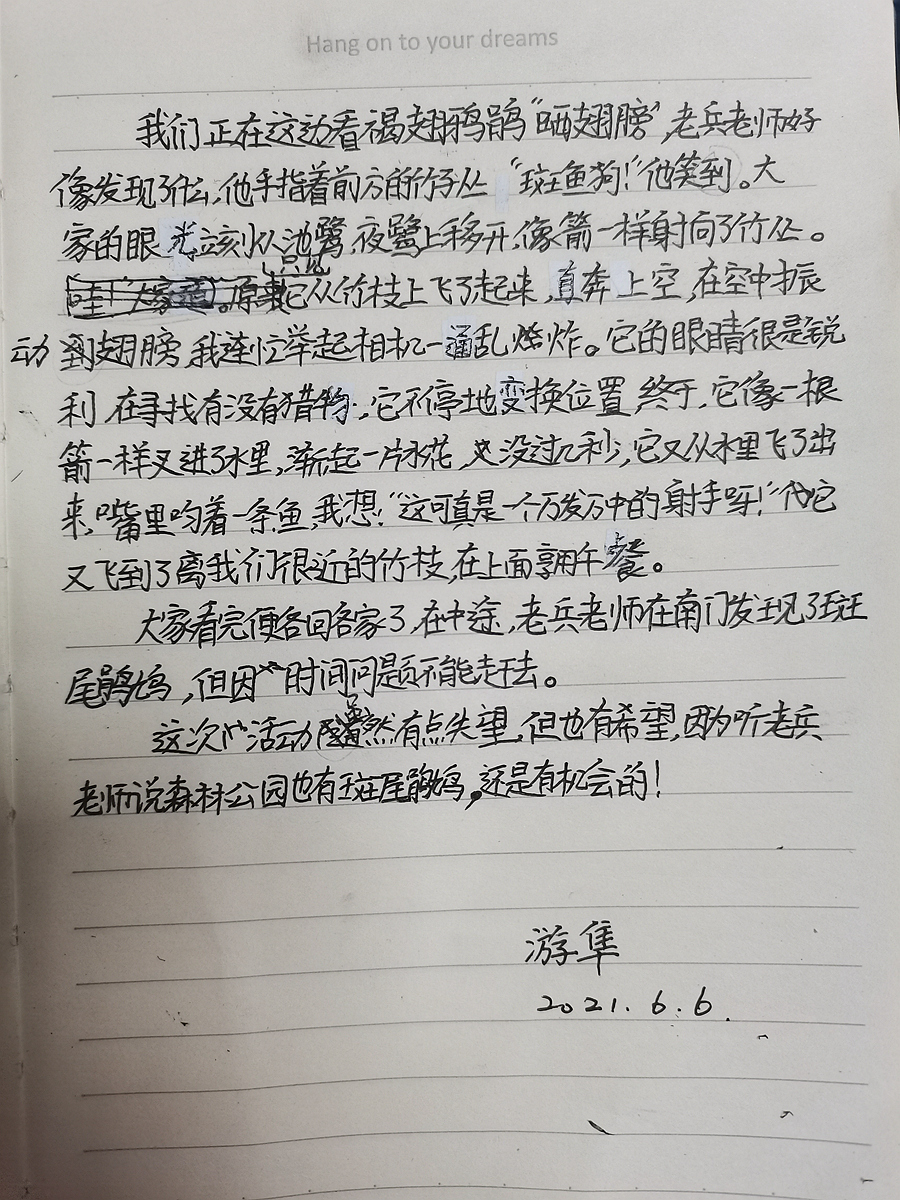 Hang on to your dreams
我们正在这边看褐翅鸦鹃“晒翅膀”,老兵老师好
像发现了什么,他手指着前方的竹子丛 “斑鱼狗!”他笑到。大
家的眼光立刻从池鹭,夜鹭上移开,像箭一样射向了竹丛。
只见它从竹枝上飞了起来,直奔上空,在空中振
动翅膀,我连忙举起相机一通乱燎炸。它的眼睛很是锐
利 在寻找有没有猎物,它不停地变换位置,终于,它像一根
箭一样叉进了水里,渐起一片水花,没过几秒,它又从水里飞了出
来,嘴里吻着一条鱼,我想:“这可真是一个万发万中的射手呀!”它
又飞到了离我们很近的竹枝,在上面享用午餐。
大家看完便各回各家了,在中途,老兵老师在南门发现了斑
尾鹃鸠,但因时间问题不能走去。
这次活动虽然有点失望,但也有希望,因为听老兵
老师说森林公园也有斑尾鹃鸠,还是有机会的!
游隼
2021.6.6.